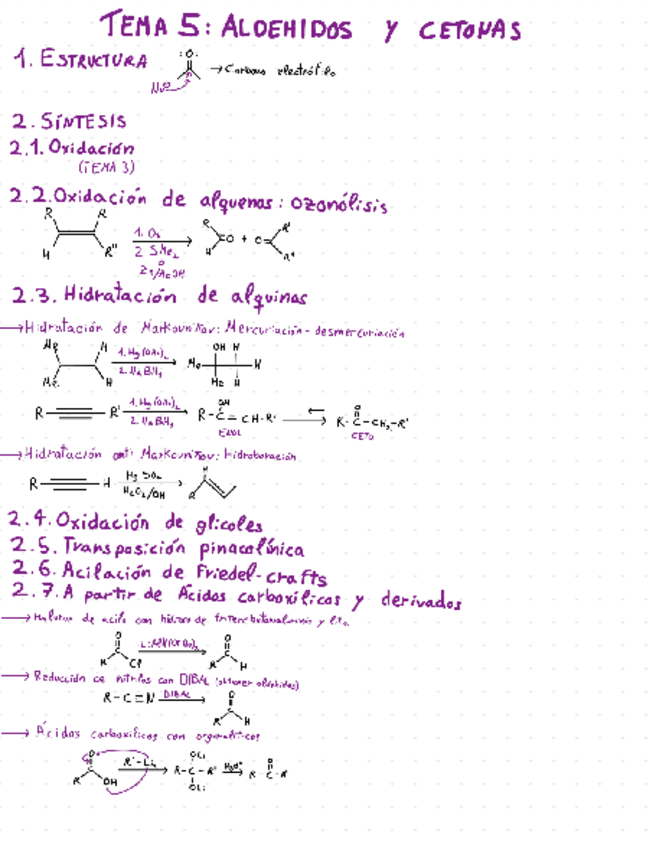 TEMA 5: ALDEHIDOS Y CETONAS
1. ESTRUCTURA
:O:
→ Carbono electrófilo
Nu:
2. SÍNTESIS
2.1. Oxidación
(TEMA 3)
2.2. Oxidación de alquenos: ozonólisis
R R
H R''
1. O₃
2. SMe₂
Zn/AcOH
R H O + O R' R''
2.3. Hidratación de alquinos
→ Hidratación de Markovnikov: Mercuriación-desmercuriación
Me H
Me H
1. Hg(OAc)₂
2. NaBH₄
OH H
Me H
Me H
R R'
1. Hg(OAc)₂
2. NaBH₄
OH
R-C=CH-R'
ENOL
O
R-C-CH₂-R'
CETO
→ Hidratación anti Markovnikov: hidroboración
R H
H₂O₂/OH
H
R
2.4. Oxidación de glicoles
2.5. Transposición pinacolínica
2.6. Acilación de Friedel-crafts
2.7. A partir de Ácidos carboxílicos y derivados
→ Haluros de acilo con hidruro de y litio
O
R Cl
O
R H
→ Reducción de nitrilos con DIBAL (obtener aldehídos)
R-C≡N DIBAL
O
R H
→ Ácidos carboxílicos con organolíticos
O
R OH
R'-Li
OLi
R-C-R'
OLi
H₃O⁺
O
R-C-R'